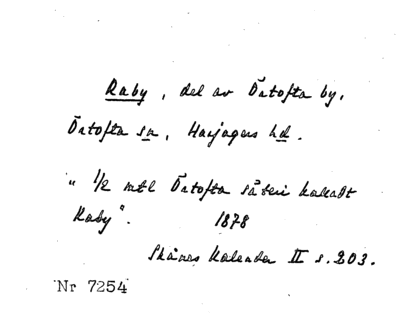 Raby, del av Örtofta by,
Örtofta sn, Harjagers hd.
"1/2 mtl Örtofta säteri kalladt
Raby". 1878
Skånes Kalender II s. 203.
Nr 7254